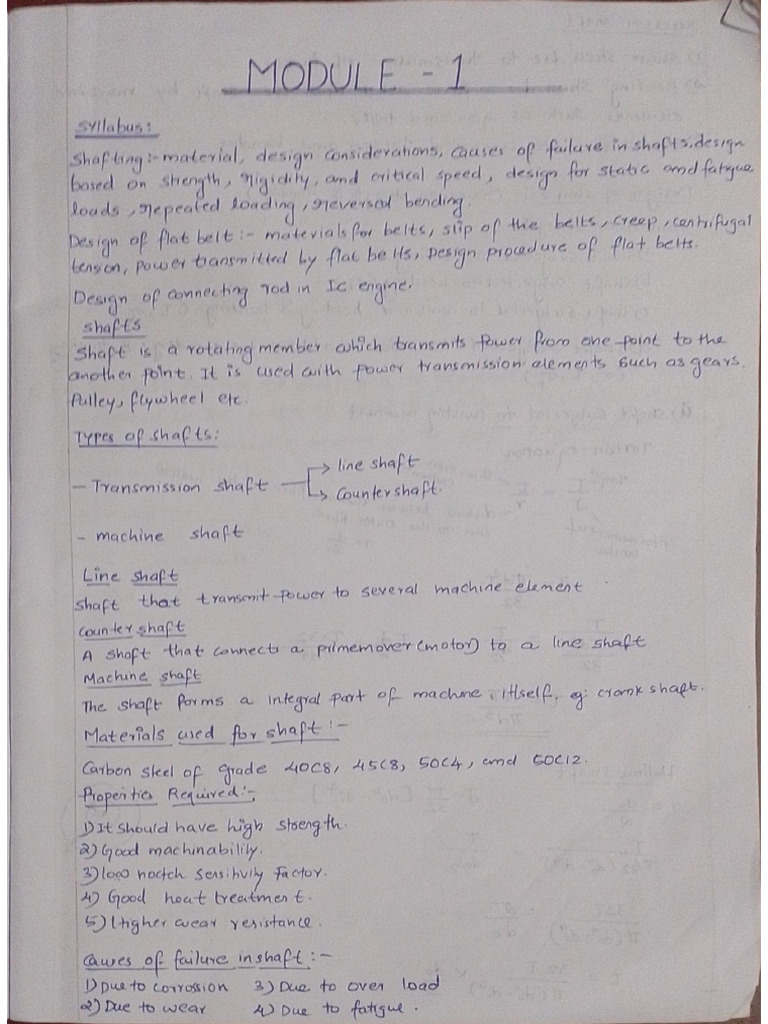 MODULE - 1
Syllabus:
Shafting:- material, design considerations, causes of failure in shafts, design
based on strength, rigidity, and critical speed, design for static and fatigue
loads, repeated loading, reversed bending.
Design of flat belt:- materials for belts, slip of the belts, creep, centrifugal
tension, power transmitted by flat belts, Design procedure of flat belts.
Design of connecting rod in IC engine.
Shafts
Shaft is a rotating member which transmits power from one point to the
another point. It is used with power transmission elements such as gears,
Pulley, flywheel etc.
Types of shafts:
- Transmission shaft → line shaft
→ Countershaft.
- machine shaft
Line shaft
Shaft that transmit power to several machine element
Counter shaft
A shaft that connects a primemover (motor) to a line shaft
Machine shaft
The shaft forms a integral part of machine itself, eg: crank shaft.
Materials used for shaft :-
Carbon steel of grade 40C8, 45C8, 50C4, and 50C12.
Properties Required:-
1) It should have high strength.
2) Good machinability.
3) low notch sensitivity factor.
4) Good heat treatment.
5) Higher wear resistance.
Causes of failure in shaft :-
1) Due to corrosion 3) Due to over load
2) Due to wear 4) Due to fatigue.